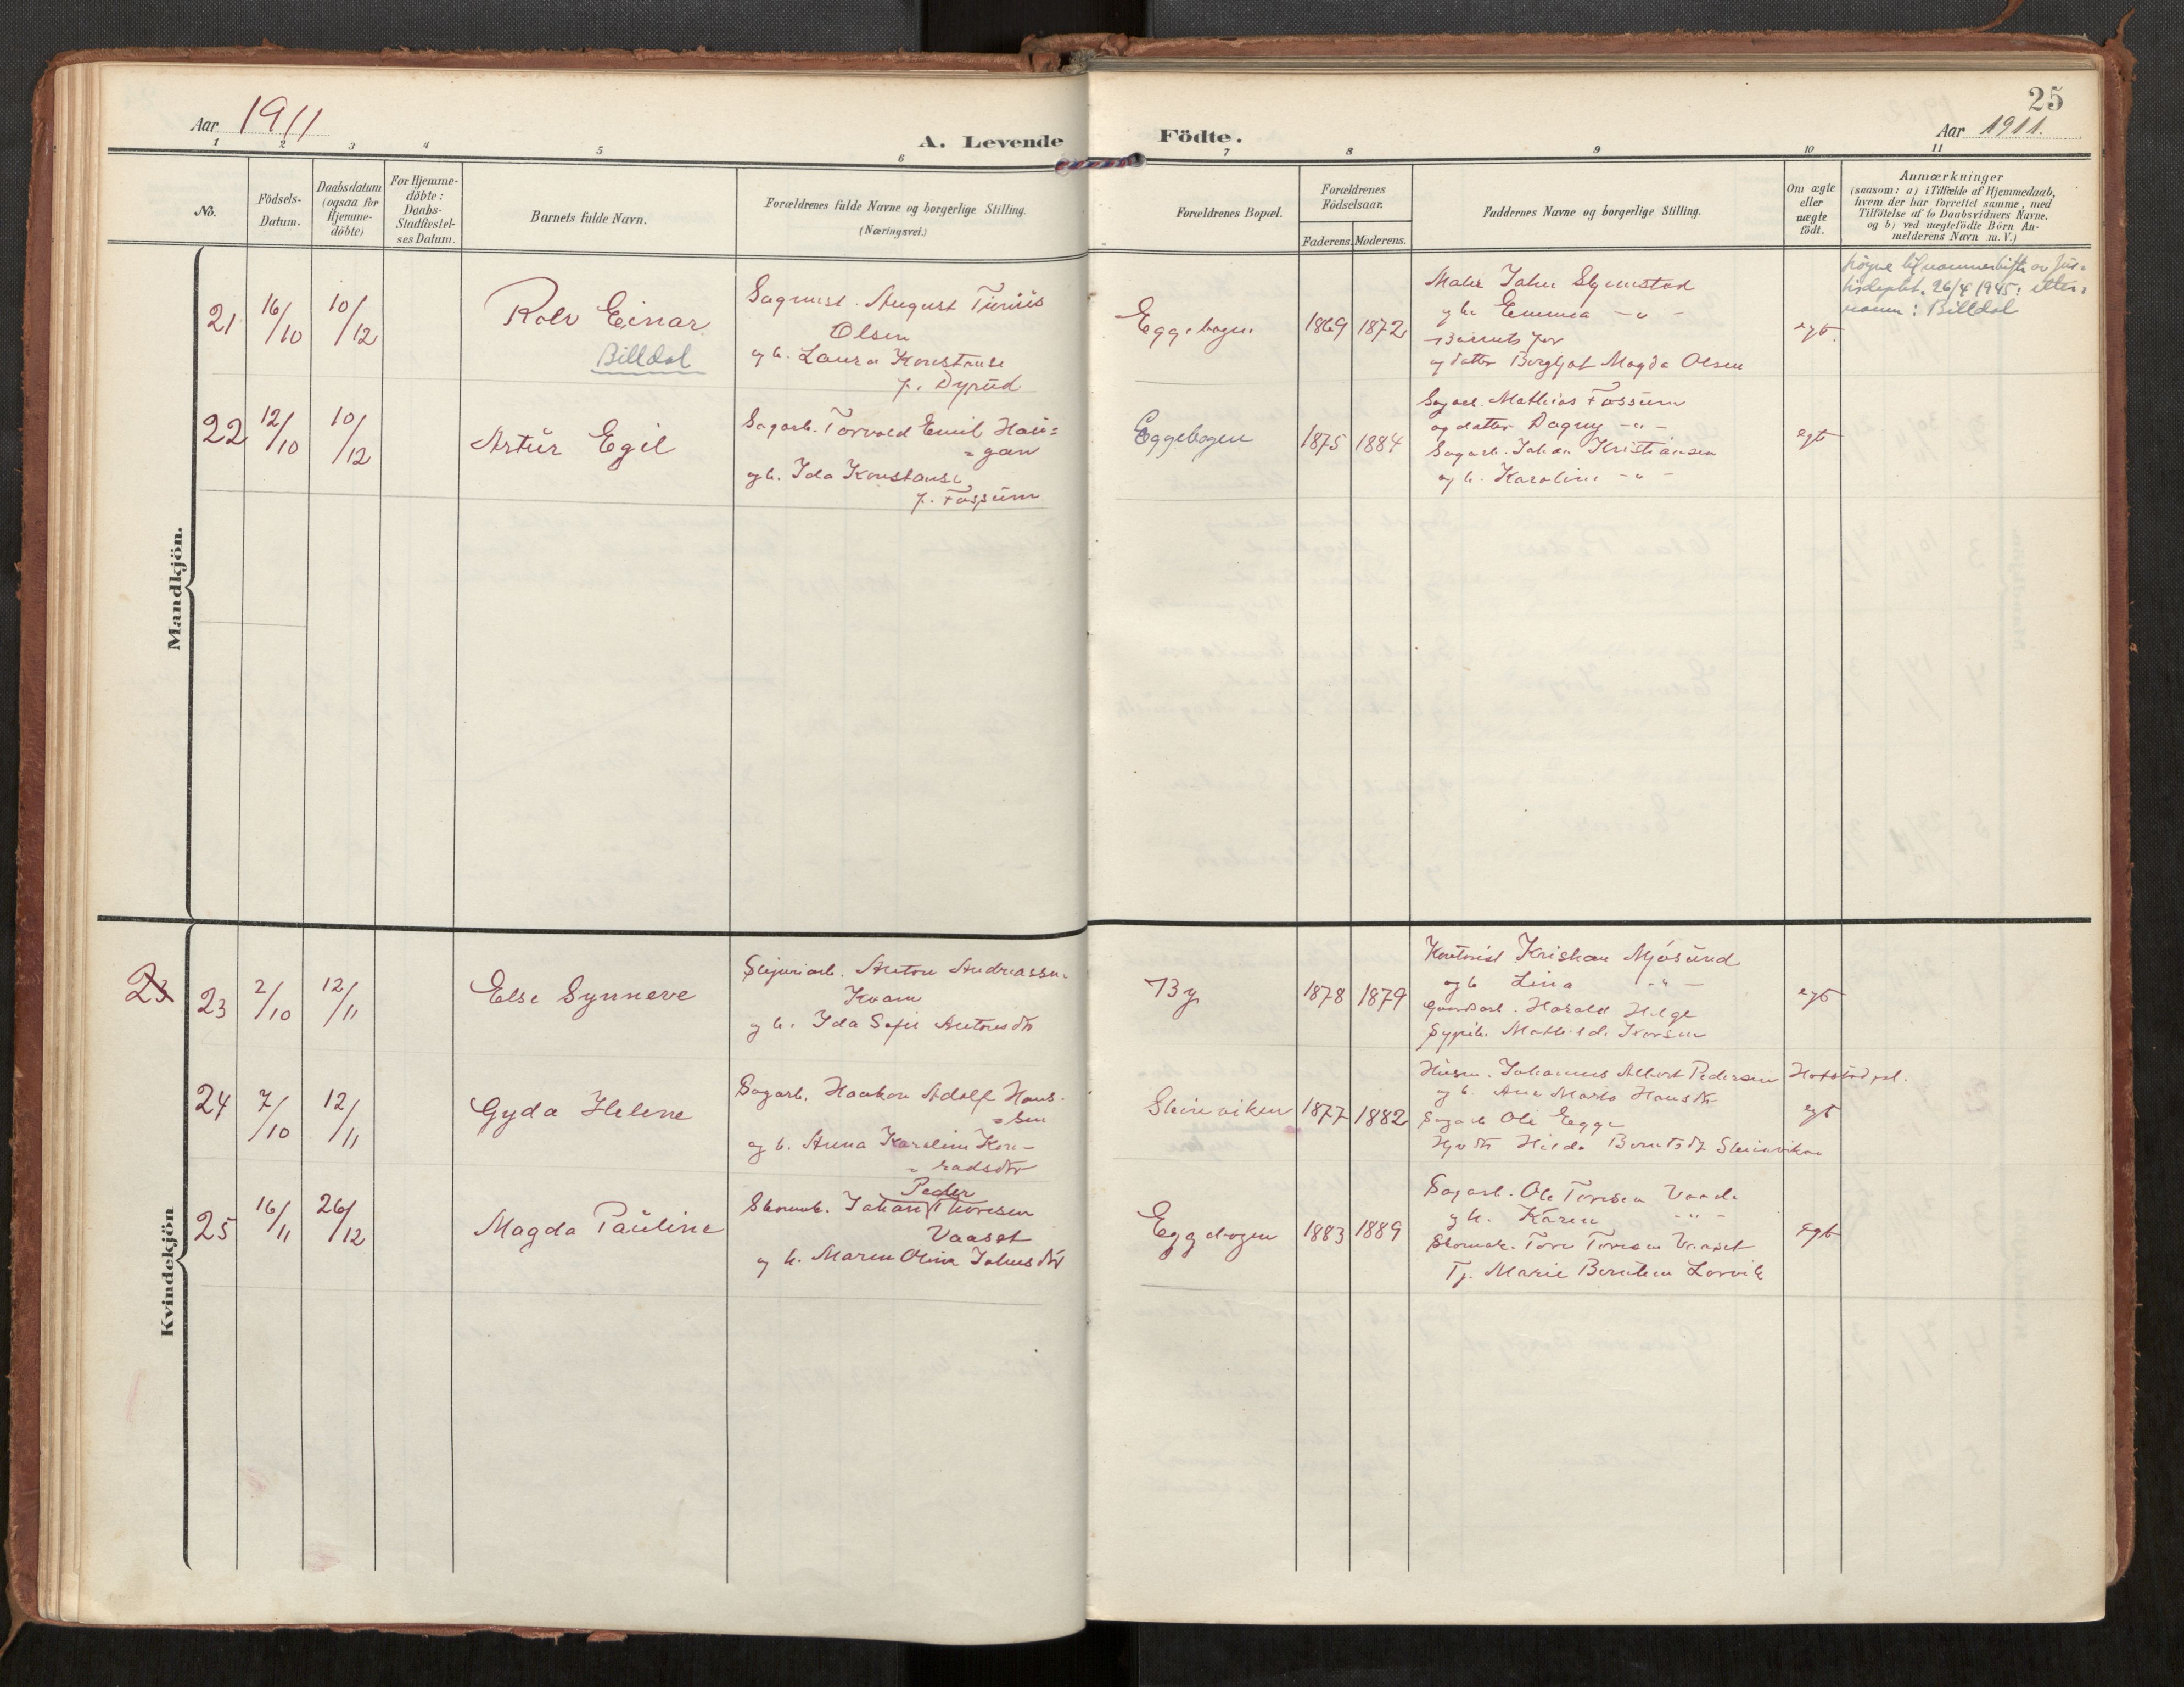 Aar 1911
A. Levende
1 2 3 4 5 6
No.
Födsels-
Datum.
Daabsdatum
(ogsaa for
Hjemme-
döbte)
For Hjemme-
döbte:
Daabs-
Stadfæstel-
ses Datum.
Barnets fulde Navn.
Forældrenes fulde Navne og borgerlige Stilling.
(Næringsvei.)
Mandkjön.
21 16/10 10/12 Rolv Einar
Billdal
Sagmest. August
Olsen
og h. Laura Konstanse
f. Dyrud
22 12/10 10/12 Artur Egil
Sagarb. Torvald Emil Hau=
=gan
og h. Ida Konstanse
f. Fossum
Kvindekjön
23 23 2/10 12/11 Else Synneve
Anton Andreassen
Kvam
og h. Ida Sofie Antonsdtr
24 7/10 12/11 Gyda Helene
Sagarb. Haakon Adolf Hans-
=sen
og h. Anna Karoline Kon-
=radsdtr
25 16/11 26/12 Magda Pauline
Peder
Skomak. Johan Thoresen
Vaaset
og h. Maren Oline Johnsdtr
25
Födte.
Aar 1911.
7 8 9 10 11
Forældrenes Bopæl.
Forældrenes
Födselsaar.
Faderens. Moderens.
Faddernes Navne og borgerlige Stilling.
Om ægte
eller
uægte
födt.
Anmærkninger
(saasom: a) i Tilfælde af Hjemmedaab,
hvem der har forrettet samme, med
Tilföielse af to Daabsvidners Navne.
og b) ved uægtefödte Börn An-
melderens Navn m. V.)
Eggebogen 1869 1872
Maler Johan
og h. Emma -"-
Barnets far
og datter Borghot Magda Olsen
egt.
av jus=
tisdeptet. 26/4 1945: etter=
navn: Billdal
Eggebogen 1875 1884
Sagarb. Mathias Fossum
og datter Dagny -"-
Sagarb. Johan Kristiansen
og h. Karoline -"-
egt
By 1878 1879
Kontorist Kristian Mjøsund
og h Lina -"-
Gaardsarb. Harald Helge
Sypike Mathilde
egt
Steinviken 1877 1882
Husm. Johannes Albert Pedersen Hofstad
og h. Ane Marta Hansdtr
Sagarb Ole Egge
Hilda Berntsdtr Steinviken
egt
Eggebogen 1883 1889
Sagarb. Ole Toresen
og h. Karen -"-
Skomak. Tore Toresen Vaaset
Tj. Marie Berntsen
egt